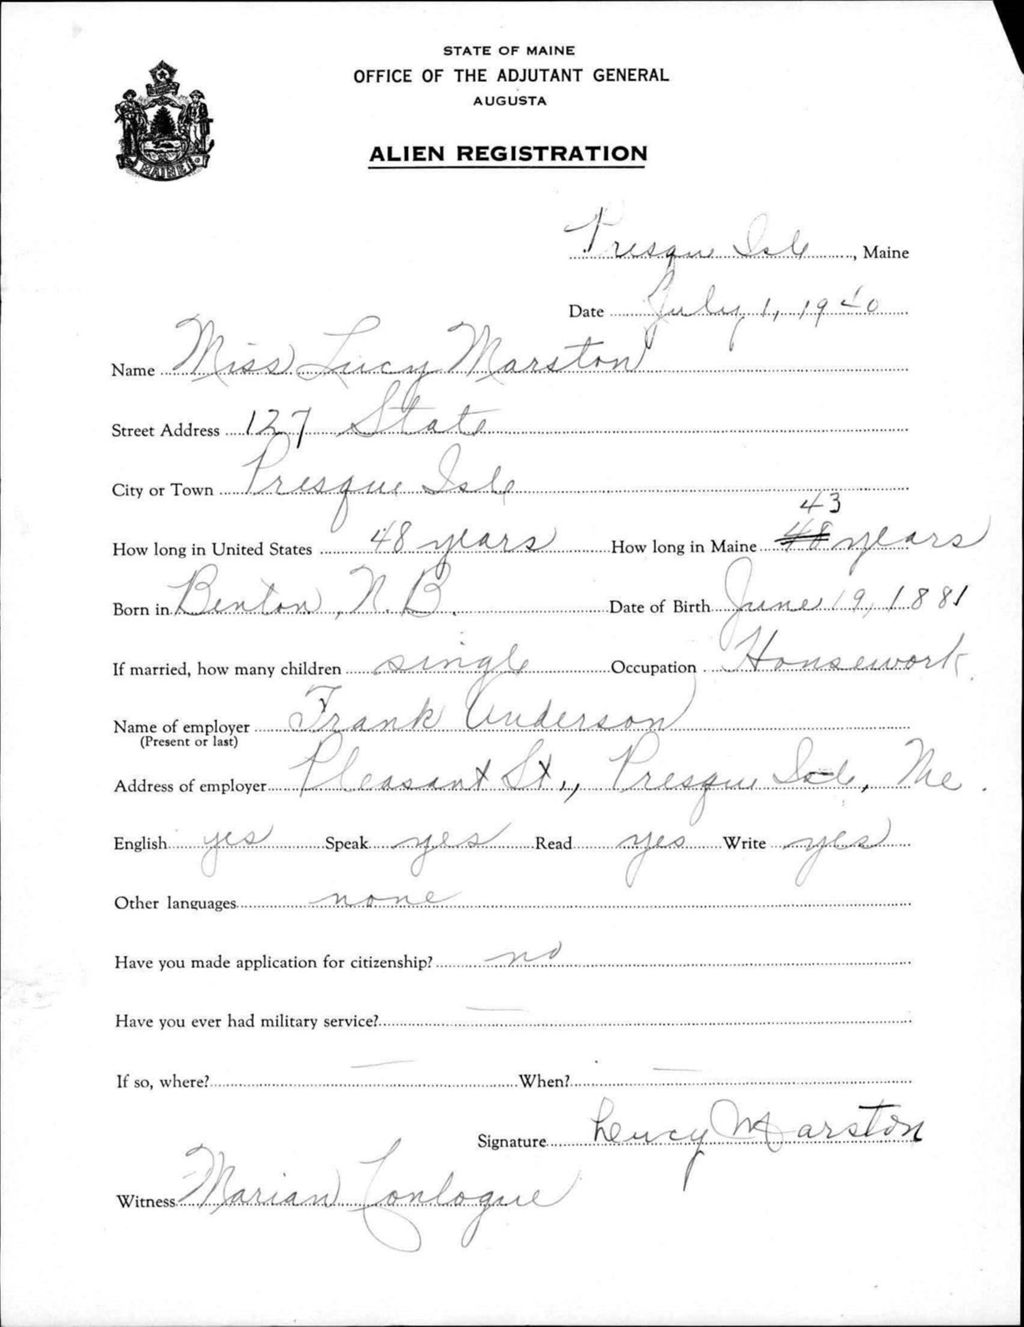 STATE OF MAINE
OFFICE OF THE ADJUTANT GENERAL
AUGUSTA
ALIEN REGISTRATION
MAINE
Presque Isle, Maine
Date July 1, 1940
Name Miss Lucy Marston
Street Address 127 State
City or Town Presque Isle
43
How long in United States 48 years How long in Maine 48 years
Born in Benton, N.B. Date of Birth June 19, 1881
If married, how many children single Occupation Housework.
Name of employer Frank Anderson
(Present or last)
Address of employer Pleasant St., Presque Isle, Me.
English yes Speak yes Read yes Write yes
Other languages none
Have you made application for citizenship? no
Have you ever had military service? —
If so, where? — When? —
Signature Leucy Marston
Witness Marian Conlogue